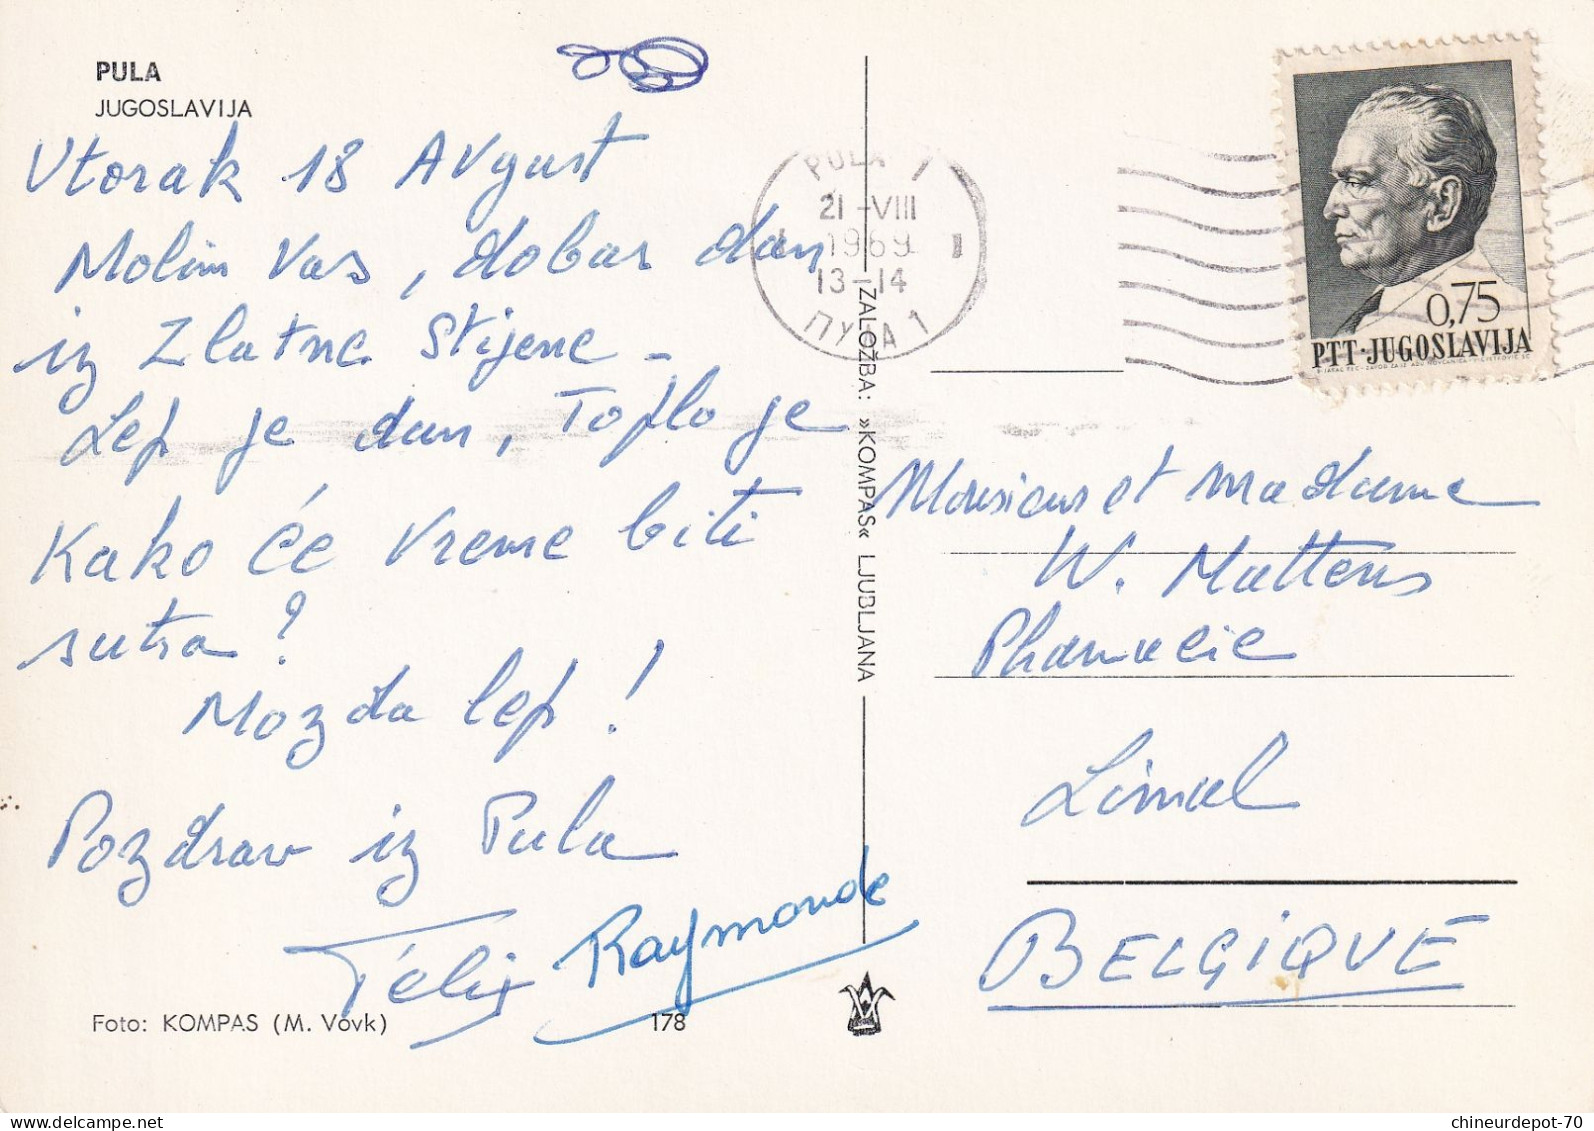 PULA
JUGOSLAVIJA
Utorak 18 Avgust
Molim Vas, dobar dan
iz Zlatne Stijene -
Lep je dan, Toplo je
Kako će Vreme biti
sutra?
Mozda lep!
Pozdrav iz Pula
Félix Raymonde
Foto: KOMPAS (M. Vovk)
178
ZALOŽBA: »KOMPAS« LJUBLJANA
PULA 1
21-VIII
1969
13-14
ПУЛА 1
0,75
PTT·JUGOSLAVIJA
Monsieur et madame
W. Mattens
Pharmacie
Limal
BELGIQUE
chineurdepot-70